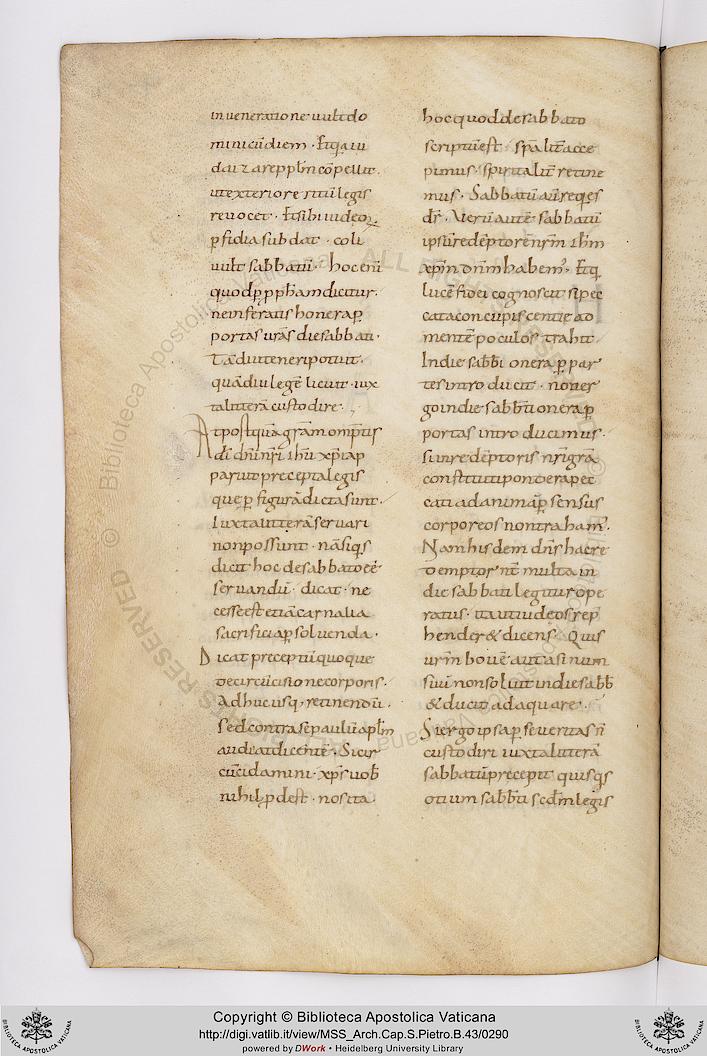 in ueneratione uult do
minicu̅ diem · Et q̅a iu
daizare pplm̅ co̅pellit ·
ut exteriore̅ ritu̅ legis
reuocet · Et sibi iudeoꝝ
ꝑfidia̅ subdat · coli
uult sabbatu̅ · hoc eni̅
quod ꝑ ꝓpħam dicitur ·
ne inferatis honera ꝑ
portas ur̅as die sabbati ·
Ta̅diu teneri potuit ·
qua̅diu lege̅ licuit iux
ta littera̅ custodire ·
At postqua̅ gr̅a m̅ omp̅tis
di̅ dn̅i nr̅i ih̅u xp̅i ap
paruit precepta legis
que ꝑ figura̅ dicta sunt ·
Iuxta littera̅ seruari
non possunt · na̅ si q̅s
dicit hoc de sabbato ee̅
seruandu̅ · dicat · ne
cesse est etia̅ carnalia
sacrificia ꝑsoluenda ·
Dicat preceptu̅ quoque
de circu̅cisione corporis ·
Adhuc usq; retinendu̅ ·
Sed contra se̅ paulu̅ apl̅m
audiat dicente̅ · Si cir
cu̅cidamini · xp̅s uob̅
nihil ꝓdest · nos ita
hoc quod de sabbato
scriptu̅ est · sp̅alit̅ acce
pimus · spiritalit̅ retine
mus · Sabbatu̅ au̅ reqes
dr̅ · Ueru̅ aute̅ sabbatu̅
ipsu̅ rede̅ptore̅ nr̅m ih̅m
xp̅m dn̅m habem' · Et q̅
luce̅ fidei cognoscit si pec
cata concupiscentie ad
mente̅ ꝑ oculos trahit
In die sabb̅i onera ꝑ por
tes introducit · non er
go in die sabb̅ti onera ꝑ
portas introducimus ·
si in rede̅ptoris nr̅i gr̅a
constituti pondera pec
cati ad anima̅ ꝑ sensus
corporeos non traham' ·
Nam hisdem dn̅s hac re
demptor nr̅ multa in
die sabbati legitur ope
ratus · ita ut iudeos rep
hender& dicens · Quis
ur̅m boue̅ aut asinum
suu̅ non soluit in die sabb̅
& ducit adaquare ·
Si ergo ipsa ꝑ se ueritas n̅
custodiri iuxta littera̅
sabbatu̅ precepit quisqs
otium sabb̅ti scd̅m legis
Copyright © Biblioteca Apostolica Vaticana
http://digi.vatlib.it/view/MSS_Arch.Cap.S.Pietro.B.43/0290
powered by DWork • Heidelberg University Library